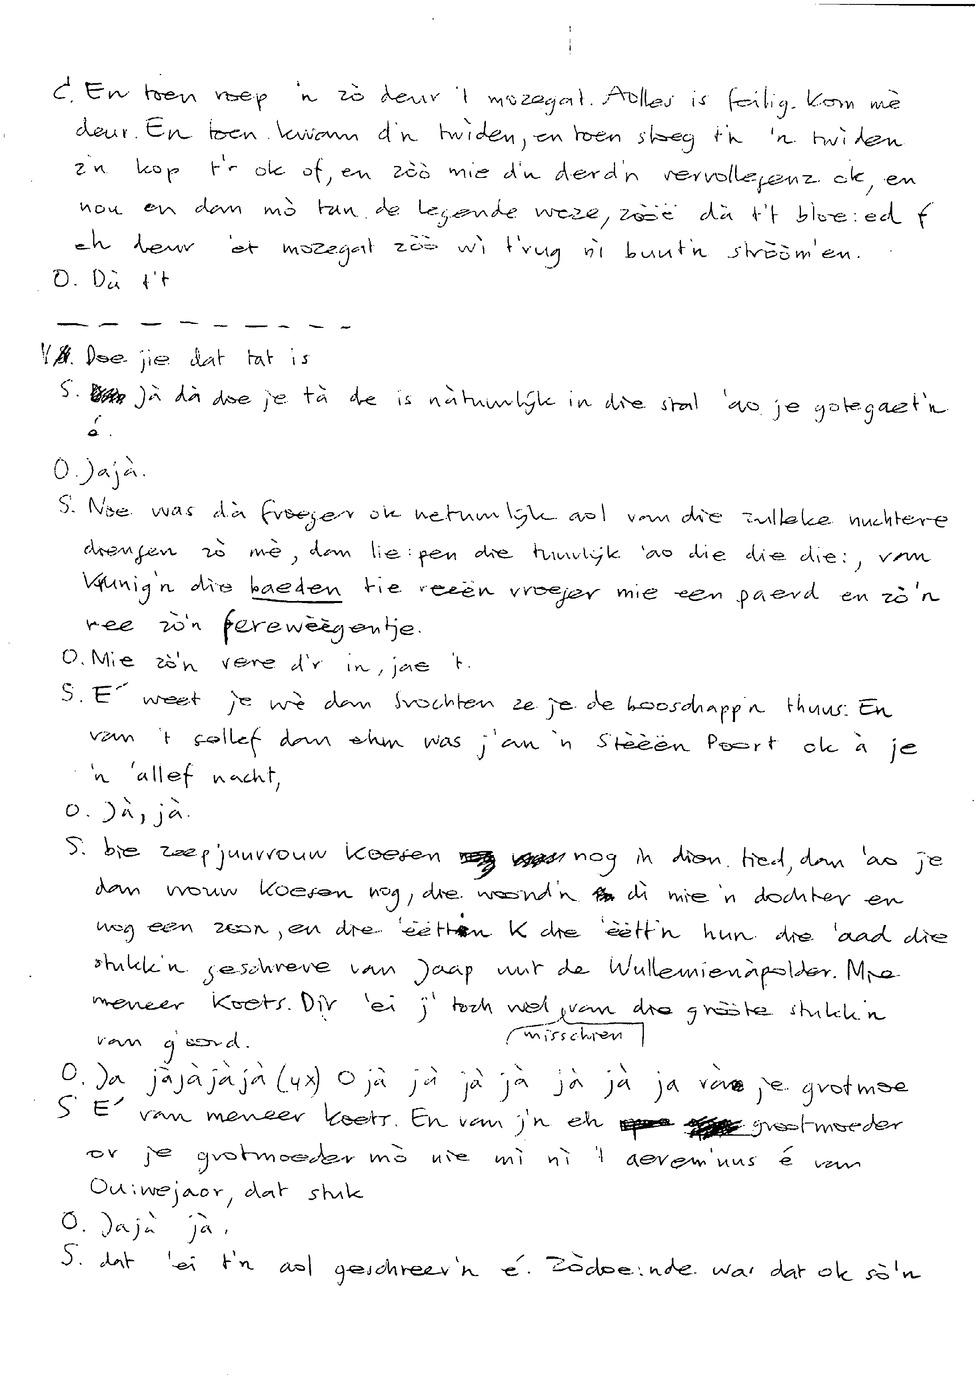 C. En toen roep 'n zò deur 't mozegat. Aolles is feilig. Kom mè
deur. En toen kwam d'n twìden, en toen sloeg t'n 'n twìden
z'n kop t'r ok of, en zòò mie d'n derd'n vervollegenz ok, en
nou en dan mò tan de legende weze, zòòë dà t't bloe:ed f
eh deur 'et mozegat zòò wì t'rug nì buut'n stròòm'en.
O. Dà t't
V. Doe jie dat tat is
S. Jà dà doe je tà de is nàtuurlijk in die stal 'ao je gotegaet'n
é.
O. Jajà.
S. Noe was dà froeger ok netuurlijk aol van die zulleke nuchtere
drengen zò mè, dan lie:pen die tuurlijk 'ao die die die:, van
Kunig'n die baeden tie reeën vroejer mie een paerd en zò'n
ree zò'n fereweègentje.
O. Mie zò'n vere d'r in, jae 't.
S. E' weet je wè dan brochten ze je de booschapp'n thuus. En
van 't sellef dan ehm was j'an 'n Stèèën Poort ok à je
'n 'allef nacht,
O. Jà, jà.
S. bie zeepjuuvrouw Koesen nog in dien tied, dan 'ao je
dan vrouw Koesen nog, die woond'n di mie 'n dochter en
nog een zoon, en die 'ëëtt'n K die 'ëëtt'n hun die 'aad die
stukk'n geschreve van Jaap uut de Wullemienàpolder. Mie
meneer Koets. Dir 'ei j' toch wel van die gròòte stukk'n
misschien
van g'oord.
O. Ja jàjàjàjà (4x) O jà jà jà jà jà jà ja van je grotmoe
S E' van meneer Koets. En van j'n eh grootmoeder
or je grotmoeder mò nie mì nì 't aerem'uus é van
Ou:wejaor, dat stuk
O. Jajà jà.
S. dat 'ei t'n aol geschreev'n é. Zòdoe:nde was dat ok sò'n